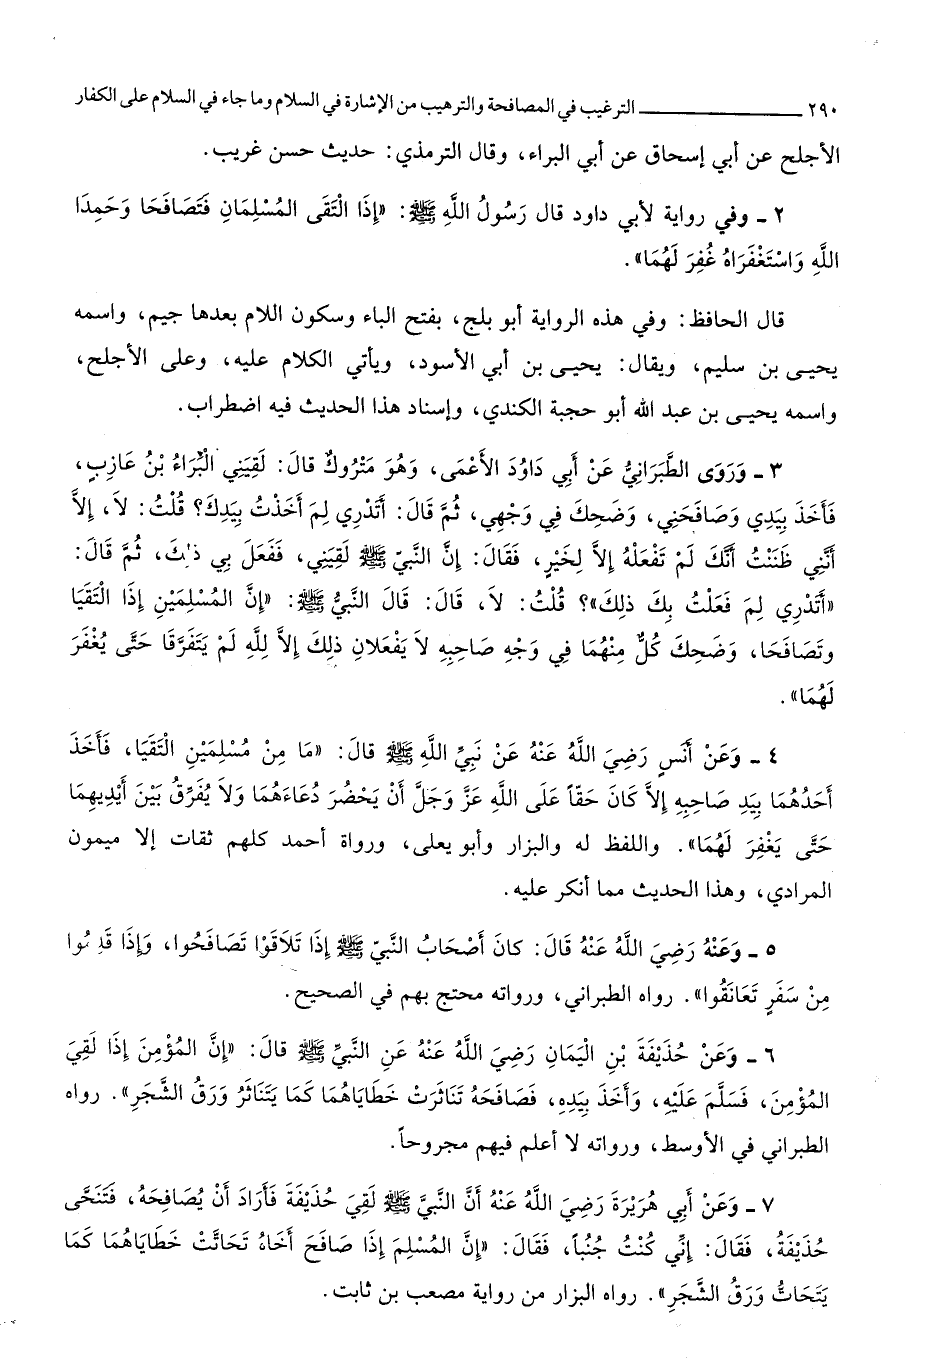 ٢٩٠ ـــــــــــــ الترغيب في المصافحة والترهيب من الإشارة في السلام وما جاء في السلام على الكفار
الأجلح عن أبي إسحاق عن أبي البراء، وقال الترمذي: حديث حسن غريب.
٢ ـ وفي رواية لأبي داود قال رَسُولُ اللَّهِ ﷺ: «إِذَا الْتَقَى المُسْلِمَانِ فَتَصَافَحَا وَحَمِدَا
اللَّهِ وَاسْتَغْفَرَاهُ غُفِرَ لَهُمَا».
قال الحافظ: وفي هذه الرواية أبو بلج، بفتح الباء وسكون اللام بعدها جيم، واسمه
يحيـى بن سليم، ويقال: يحيـى بن أبي الأسود، ويأتي الكلام عليه، وعلى الأجلح،
واسمه يحيـى بن عبد الله أبو حجبة الكندي، وإسناد هذا الحديث فيه اضطراب.
٣ ـ وَرَوَى الطَّبَرَانِيُّ عَنْ أَبِي دَاوُدَ الأَعْمَى، وَهُوَ مَتْرُوكٌ قالَ: لَقِيَنِي الْبَرَاءُ بْنُ عَازِبٍ،
فَأَخَذَ بِيَدِي وَصَافَحَنِي، وَضَحِكَ فِي وَجْهِي، ثُمَّ قَالَ: أَتَدْرِي لِمَ أَخَذْتُ بِيَدِكَ؟ قُلْتُ: لاَ، إِلاَّ
أَنَّنِي ظَنَنْتُ أَنَّكَ لَمْ تَفْعَلْهُ إِلاَّ لِخَيْرٍ، فَقَالَ: إِنَّ النَّبِيّ ﷺ لَقِيَنِي، فَفَعَلَ بِي ذلِكَ، ثُمَّ قَالَ:
«أَتَدْرِي لِمَ فَعَلْتُ بِكَ ذلِكَ»؟ قُلْتُ: لاَ، قَالَ: قَالَ النَّبِيُّ ﷺ: «إِنَّ المُسْلِمَيْنِ إِذَا الْتَقَيَا
وَتَصَافَحَا، وَضَحِكَ كُلٌّ مِنْهُمَا فِي وَجْهِ صَاحِبِهِ لاَ يَفْعَلانِ ذلِكَ إِلاَّ لِلَّهِ لَمْ يَتَفَرَّقَا حَتَّى يُغْفَرَ
لَهُمَا».
٤ ـ وَعَنْ أَنَسٍ رَضِيَ اللَّهُ عَنْهُ عَنْ نَبِيِّ اللَّهِ ﷺ قالَ: «مَا مِنْ مُسْلِمَيْنِ الْتَقَيَا، فَأَخَذَ
أَحَدُهُمَا بِيَدِ صَاحِبِهِ إِلاَّ كَانَ حَقّاً عَلَى اللَّهِ عَزَّ وَجَلَّ أَنْ يَحْضُرَ دُعَاءَهُمَا وَلاَ يُفَرِّقُ بَيْنَ أَيْدِيهِمَا
حَتَّى يَغْفِرَ لَهُمَا». واللفظ له والبزار وأبو يعلى، ورواة أحمد كلهم ثقات إلا ميمون
المرادي، وهذا الحديث مما أنكر عليه.
٥ ـ وَعَنْهُ رَضِيَ اللَّهُ عَنْهُ قَالَ: كانَ أَصْحَابُ النَّبِيّ ﷺ إِذَا تَلاَقَوْا تَصَافَحُوا، وَإِذَا قَدِمُوا
مِنْ سَفَرٍ تَعَانَقُوا». رواه الطبراني، ورواته محتج بهم في الصحيح.
٦ ـ وَعَنْ حُذَيْفَةَ بْنِ الْيَمَانِ رَضِيَ اللَّهُ عَنْهُ عَنِ النَّبِيِّ ﷺ قالَ: «إِنَّ المُؤْمِنَ إِذَا لَقِيَ
المُؤْمِنَ، فَسَلَّمَ عَلَيْهِ، وَأَخَذَ بِيَدِهِ، فَصَافَحَهُ تَنَاثَرَتْ خَطَايَاهُمَا كَمَا يَتَنَاثَرُ وَرَقُ الشَّجَرِ». رواه
الطبراني في الأوسط، ورواته لا أعلم فيهم مجروحاً.
٧ ـ وَعَنْ أَبِي هُرَيْرَةَ رَضِيَ اللَّهُ عَنْهُ أَنَّ النَّبِيَّ ﷺ لَقِيَ حُذَيْفَةَ فَأَرَادَ أَنْ يُصَافِحَهُ، فَتَنَحَّى
حُذَيْفَةُ، فَقَالَ: إِنِّي كُنْتُ جُنُباً، فَقَالَ: «إِنَّ المُسْلِمَ إِذَا صَافَحَ أَخَاهُ تَحَاتَّتْ خَطَايَاهُمَا كَمَا
يَتَحَاتُّ وَرَقُ الشَّجَرِ». رواه البزار من رواية مصعب بن ثابت.